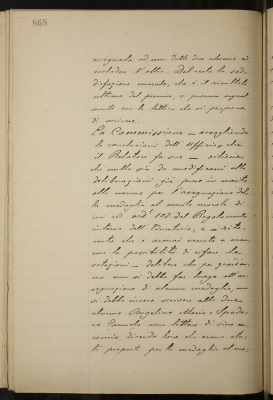 868
assegnata ad una delle due alunne ad
esclusione l'altra. Del resto la sod
disfazione morale, che è il risultato
ultimo del premio, e
mente con la lettera che si propone
di scrivere.
La Commissione – accogliendo
le conclusioni dell'Ufficio, che
il Relatore fa sue – ritiene
che nulla sia da modificarsi alle
deliberazioni già prese in merito
alle norme per l'assegnazione del
la medaglia al merito morale di
cui all'art.° 108 del Regolamento
interno dell'Istituto, e – rite
nuto che è ormai venuta a man
care la possibilità di rifare la
votazione – delibera che per quest'an
no non si debba far luogo all'as
segnazione di alcuna medaglia, ma
si debba invece scrivere alle due
alunne Angelino Maria e Spada
ro Carmela una lettera di vivo en
comio, dicendo loro che erano sta
te proposte per la medaglia al me